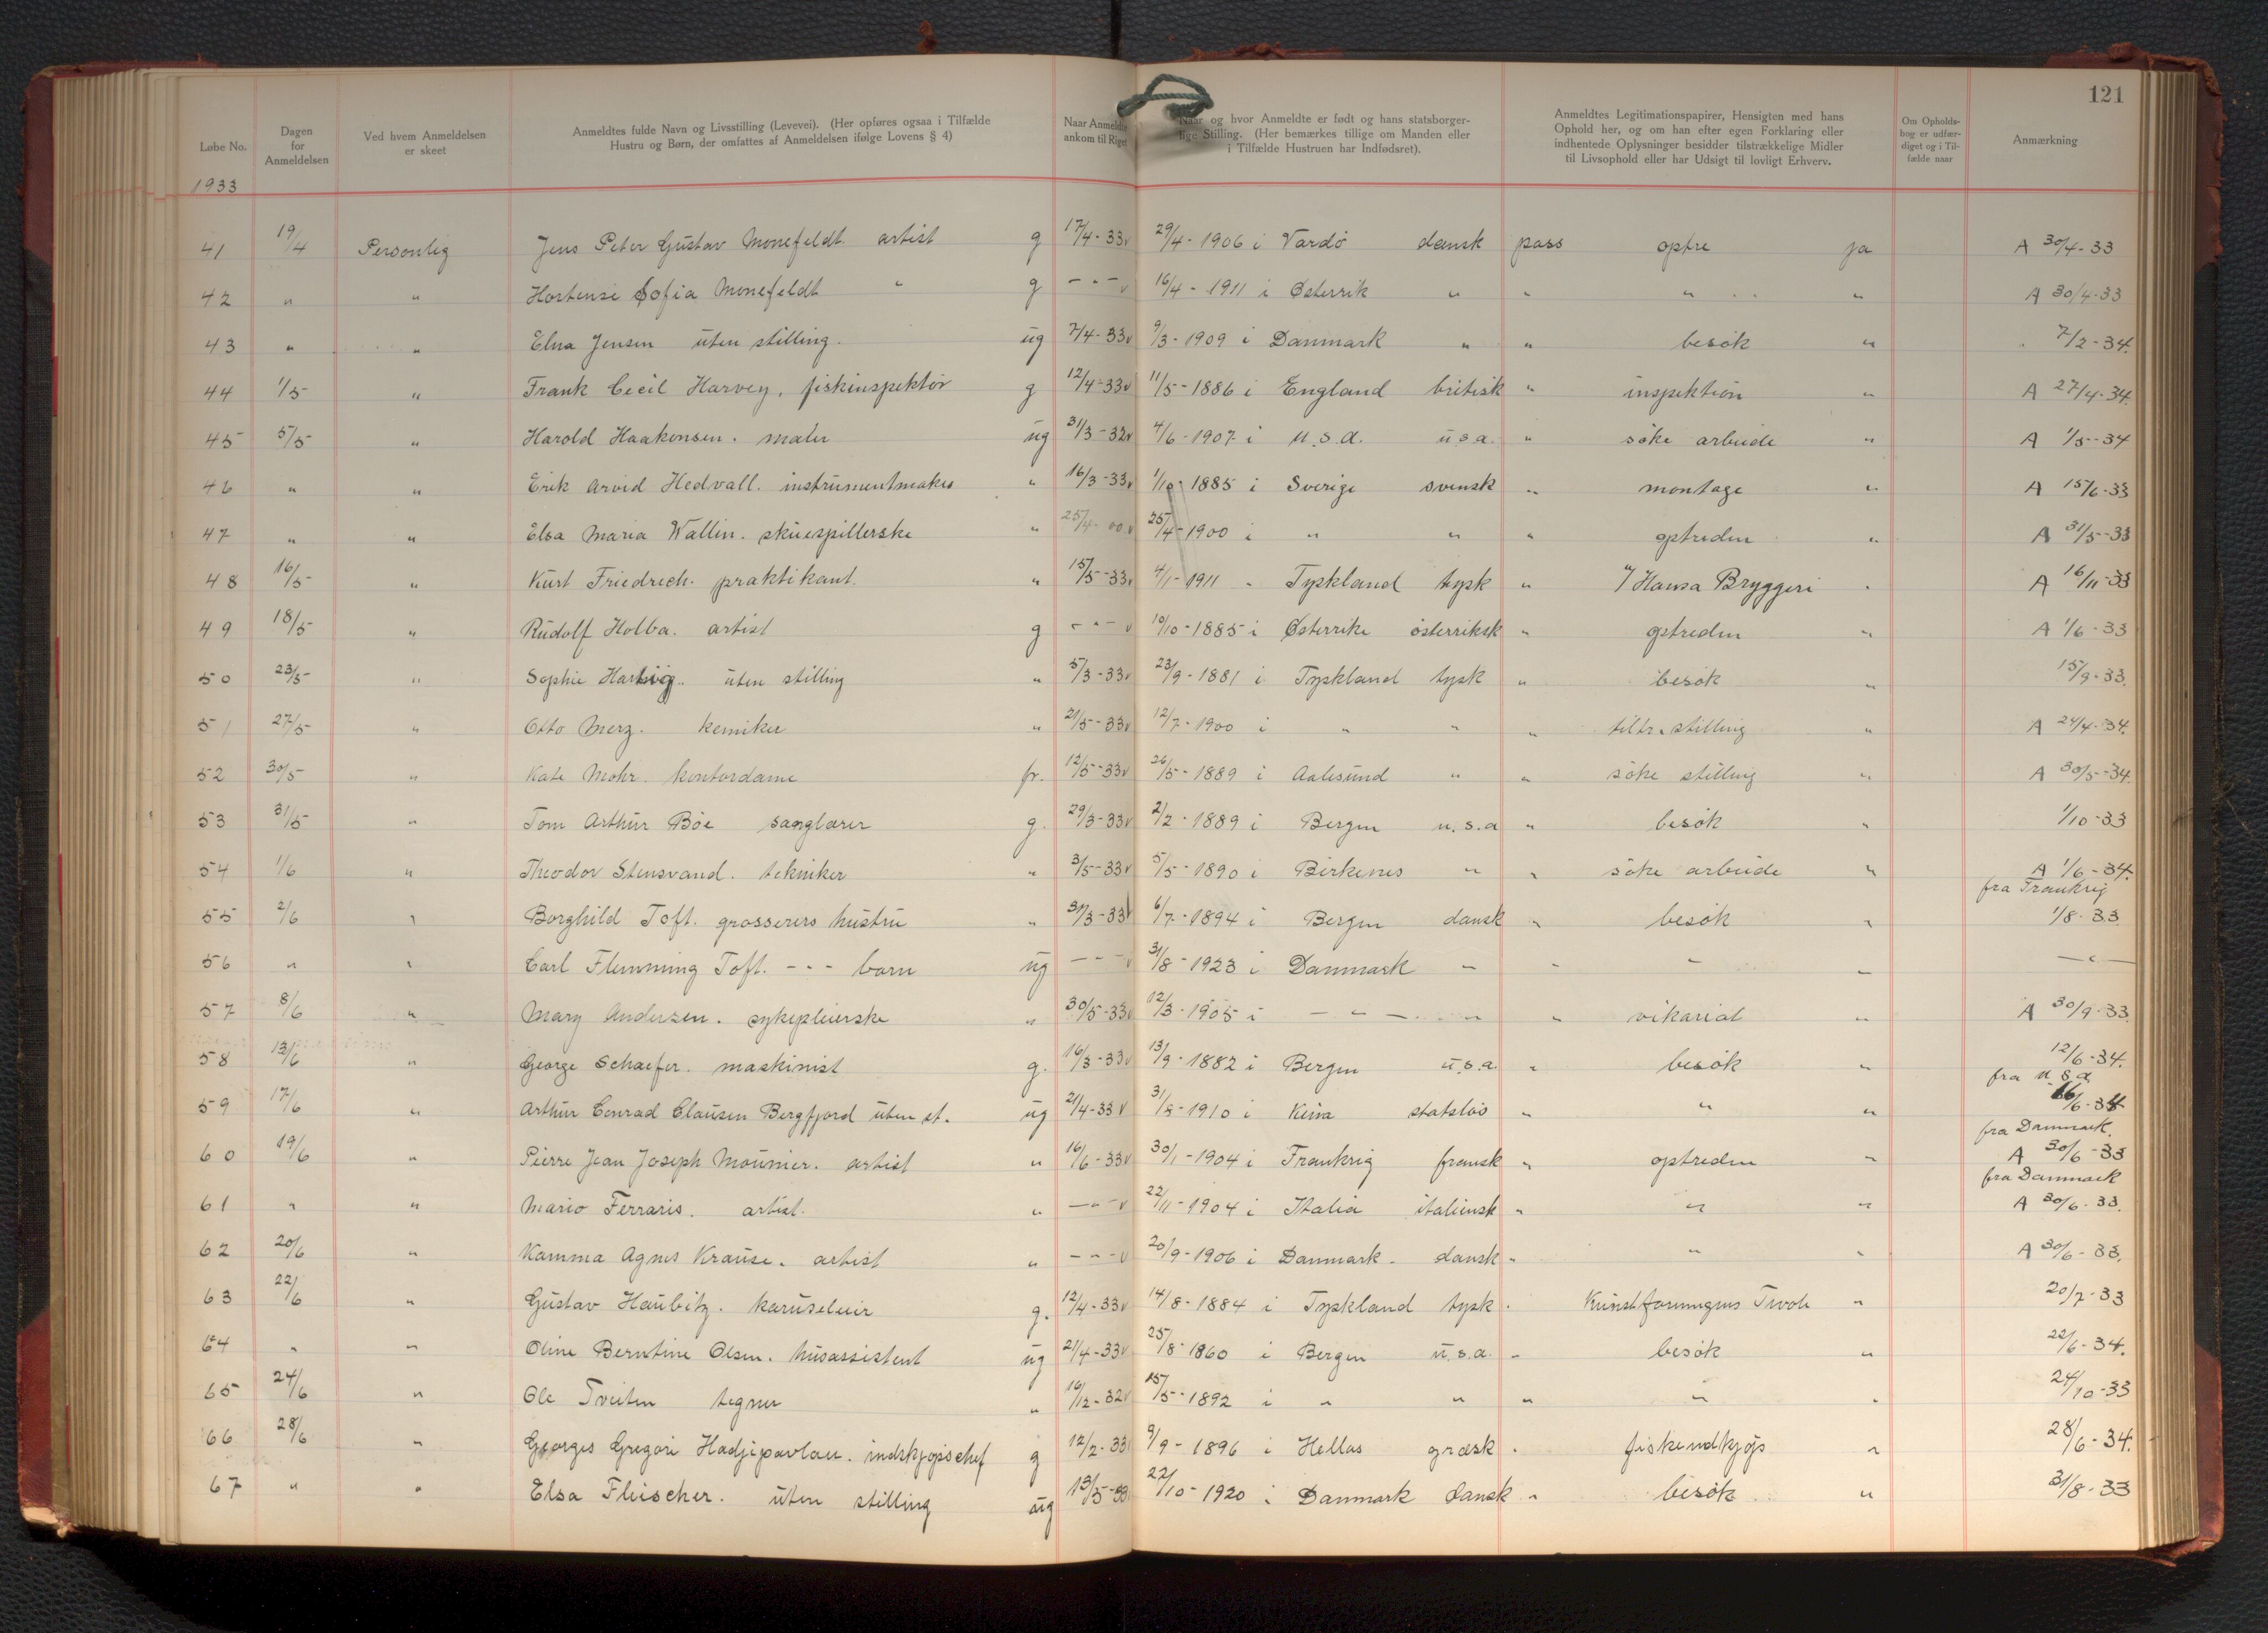 121
Løbe No.
Dagen for Anmeldelsen
Ved hvem Anmeldelsen er skeet
Anmeldtes fulde Navn og Livsstilling (Levevei). (Her opføres ogsaa i Tilfælde Hustru og Børn, der omfattes af Anmeldelsen ifølge Lovens § 4)
Naar Anmeldte ankom til Riget
Naar og hvor Anmeldte er født og hans statsborgerlige Stilling. (Her bemærkes tillige om Manden eller i Tilfælde Hustruen har Indfødsret).
Anmeldtes Legitimationspapirer, Hensigten med hans Ophold her, og om han efter egen Forklaring eller indhentede Oplysninger besidder tilstrækkelige Midler til Livsophold eller har Udsigt til lovligt Erhverv.
Om Opholdsbog er udfærdiget og i Tilfælde naar
Anmærkning
1933
41 19/4 Personlig Jens Peter Gustav Monefeldt artist g 17/4-33 v 29/4-1906 i Vardö dansk pass optre ja A 30/4-33
42 " " Hortense Sofia Monefeldt " g - " - v 16/4-1911 i Østerrik " " " " A 30/4-33
43 " " Elna Jensen uten stilling. ug 7/4-33 v 9/3-1909 i Danmark " " besök " 7/2-34.
44 1/5 " Frank Cecil Harvey, fiskinspektör g 12/4-33 v 11/5-1886 i England britisk " inspektion " A 27/4-34.
45 5/5 " Harold Haakensen. maler ug 31/3-32 v 4/6-1907 i U.S.A. u.s.a. " söke arbeide " A 1/5-34
46 " " Erik Arvid Hedvall. instrumentmaker " 16/3-33 v 1/10-1885 i Sverige svensk " montage " A 15/6-33
47 " " Elsa Maria Wallin. skuespillerske " 25/4-00 v 25/4-1900 i " " " optreden " A 31/5-33
48 16/5 " Kurt Friedrich. praktikant. " 15/5-33 v 4/1-1911 - Tyskland tysk " Hansa Bryggeri " A 16/11-33
49 18/5 " Rudolf Holba. artist g - " - v 10/10-1885 i Østerrike österriksk " optreden " A 1/6-33
50 23/5 " Sophie Hartvig. uten stilling " 5/3-33 v 23/9-1881 i Tyskland tysk " besök " 15/9-33.
51 27/5 " Otto Merz. kemiker " 21/5-33 v 12/7-1900 i " " " tiltr. stilling " A 24/4-34.
52 30/5 " Kate Mohr. kontordame fr. 12/5-33 v 26/5-1889 i Aalesund " " söke stilling " A 30/5-34.
53 31/5 " Tom Arthur Böe sanglærer g. 29/3-33 v 2/2-1889 i Bergen u.s.a " besök " 1/10-33
54 1/6 " Theodor Stensvand. tekniker " 3/5-33 v 5/5-1890 i Birkenes " " söke arbeide " A 1/6-34.
fra Frankrig
55 2/6 " Borghild Toft. grosserers hustru " 31/3-33 v 6/7-1894 i Bergen dansk " besök " 1/8-33
56 " " Carl Flemming Toft. - - - barn ug - - - v 31/8-1923 i Danmark - - - - - " -
57 8/6 " Mary Andersen. sykepleierske " 30/5-33 v 12/3-1905 i - " - " " vikariat " A 30/9-33.
58 13/6 " George Schaefer. maskinist g. 16/3-33 v 13/9-1882 i Bergen u.s.a. " besök " 12/6-34.
fra U.S.A.
59 17/6 " Arthur Conrad Clausen Bergfjord uten st. ug 21/4-33 v 31/8-1910 i Kina statslös " " " 16/6-34
fra Danmark.
60 19/6 " Pierre Jean Joseph Mounier. artist " 16/6-33 v 30/1-1904 i Frankrig fransk " optreden " A 30/6-33
fra Danmark
61 " " Mario Ferraris. artist. " - " - v 22/11-1904 i Italia italiensk " " " A 30/6-33.
62 20/6 " Kamma Agnes Krause. artist " - " - v 20/9-1906 i Danmark - dansk " " " A 30/6-33.
63 22/6 " Gustav Haubitz. karuseleier g. 12/4-33 v 14/8-1884 i Tyskland tysk " Kunstforeningens Tivoli " 20/7-33
64 " " Oline Berntine Olsen. husassistent ug 21/4-33 v 25/8-1860 i Bergen u.s.a. " besök " 22/6-34.
65 24/6 " Ole Tveiten tegner " 16/12-32 v 15/5-1892 i " " " " " 24/10-33
66 28/6 " Georges Gregori Hadjipavlou. indskjöpschef g 12/2-33 9/9-1896 i Hellas græsk " fiskeindkjöp " 28/6-34.
67 " " Elsa Fleischer. uten stilling ug 13/5-33 22/10-1920 i Danmark dansk " besök " 31/8-33